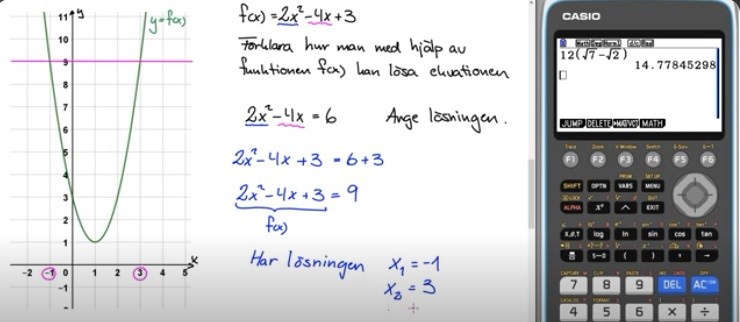 11 y y=f(x)
10
9
8
7
6
5
4
3
2
1
-2 -1 0 1 2 3 4 5 x
-1
f(x) = 2x²-4x+3
Förklara hur man med hjälp av
funktionen f(x) kan lösa ekvationen
2x²-4x = 6 Ange lösningen.
2x²-4x+3 = 6+3
2x²-4x+3 = 9
f(x)
Har lösningen x₁ = -1
x₂ = 3
CASIO
12(√7-√2)
14.77845298
JUMP DELETE ▶MAT/VCT MATH
F1 F2 F3 F4 F5 F6
SHIFT OPTN VARS MENU
ALPHA x² ^ EXIT
X,θ,T log ln sin cos tan
S⇔D ( ) , →
7 8 9 DEL AC
4 5 6 × ÷